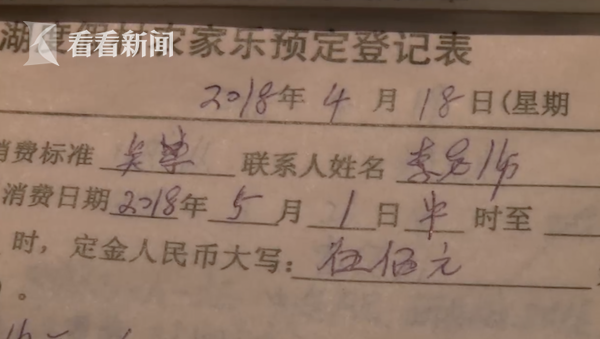 看看新闻
湖度假村农家乐预定登记表
2018年 4 月 18 日(星期
消费标准 联系人姓名 李
消费日期 2018 年 5 月 1 日 中 时至
时，定金人民币大写：伍佰元
)。